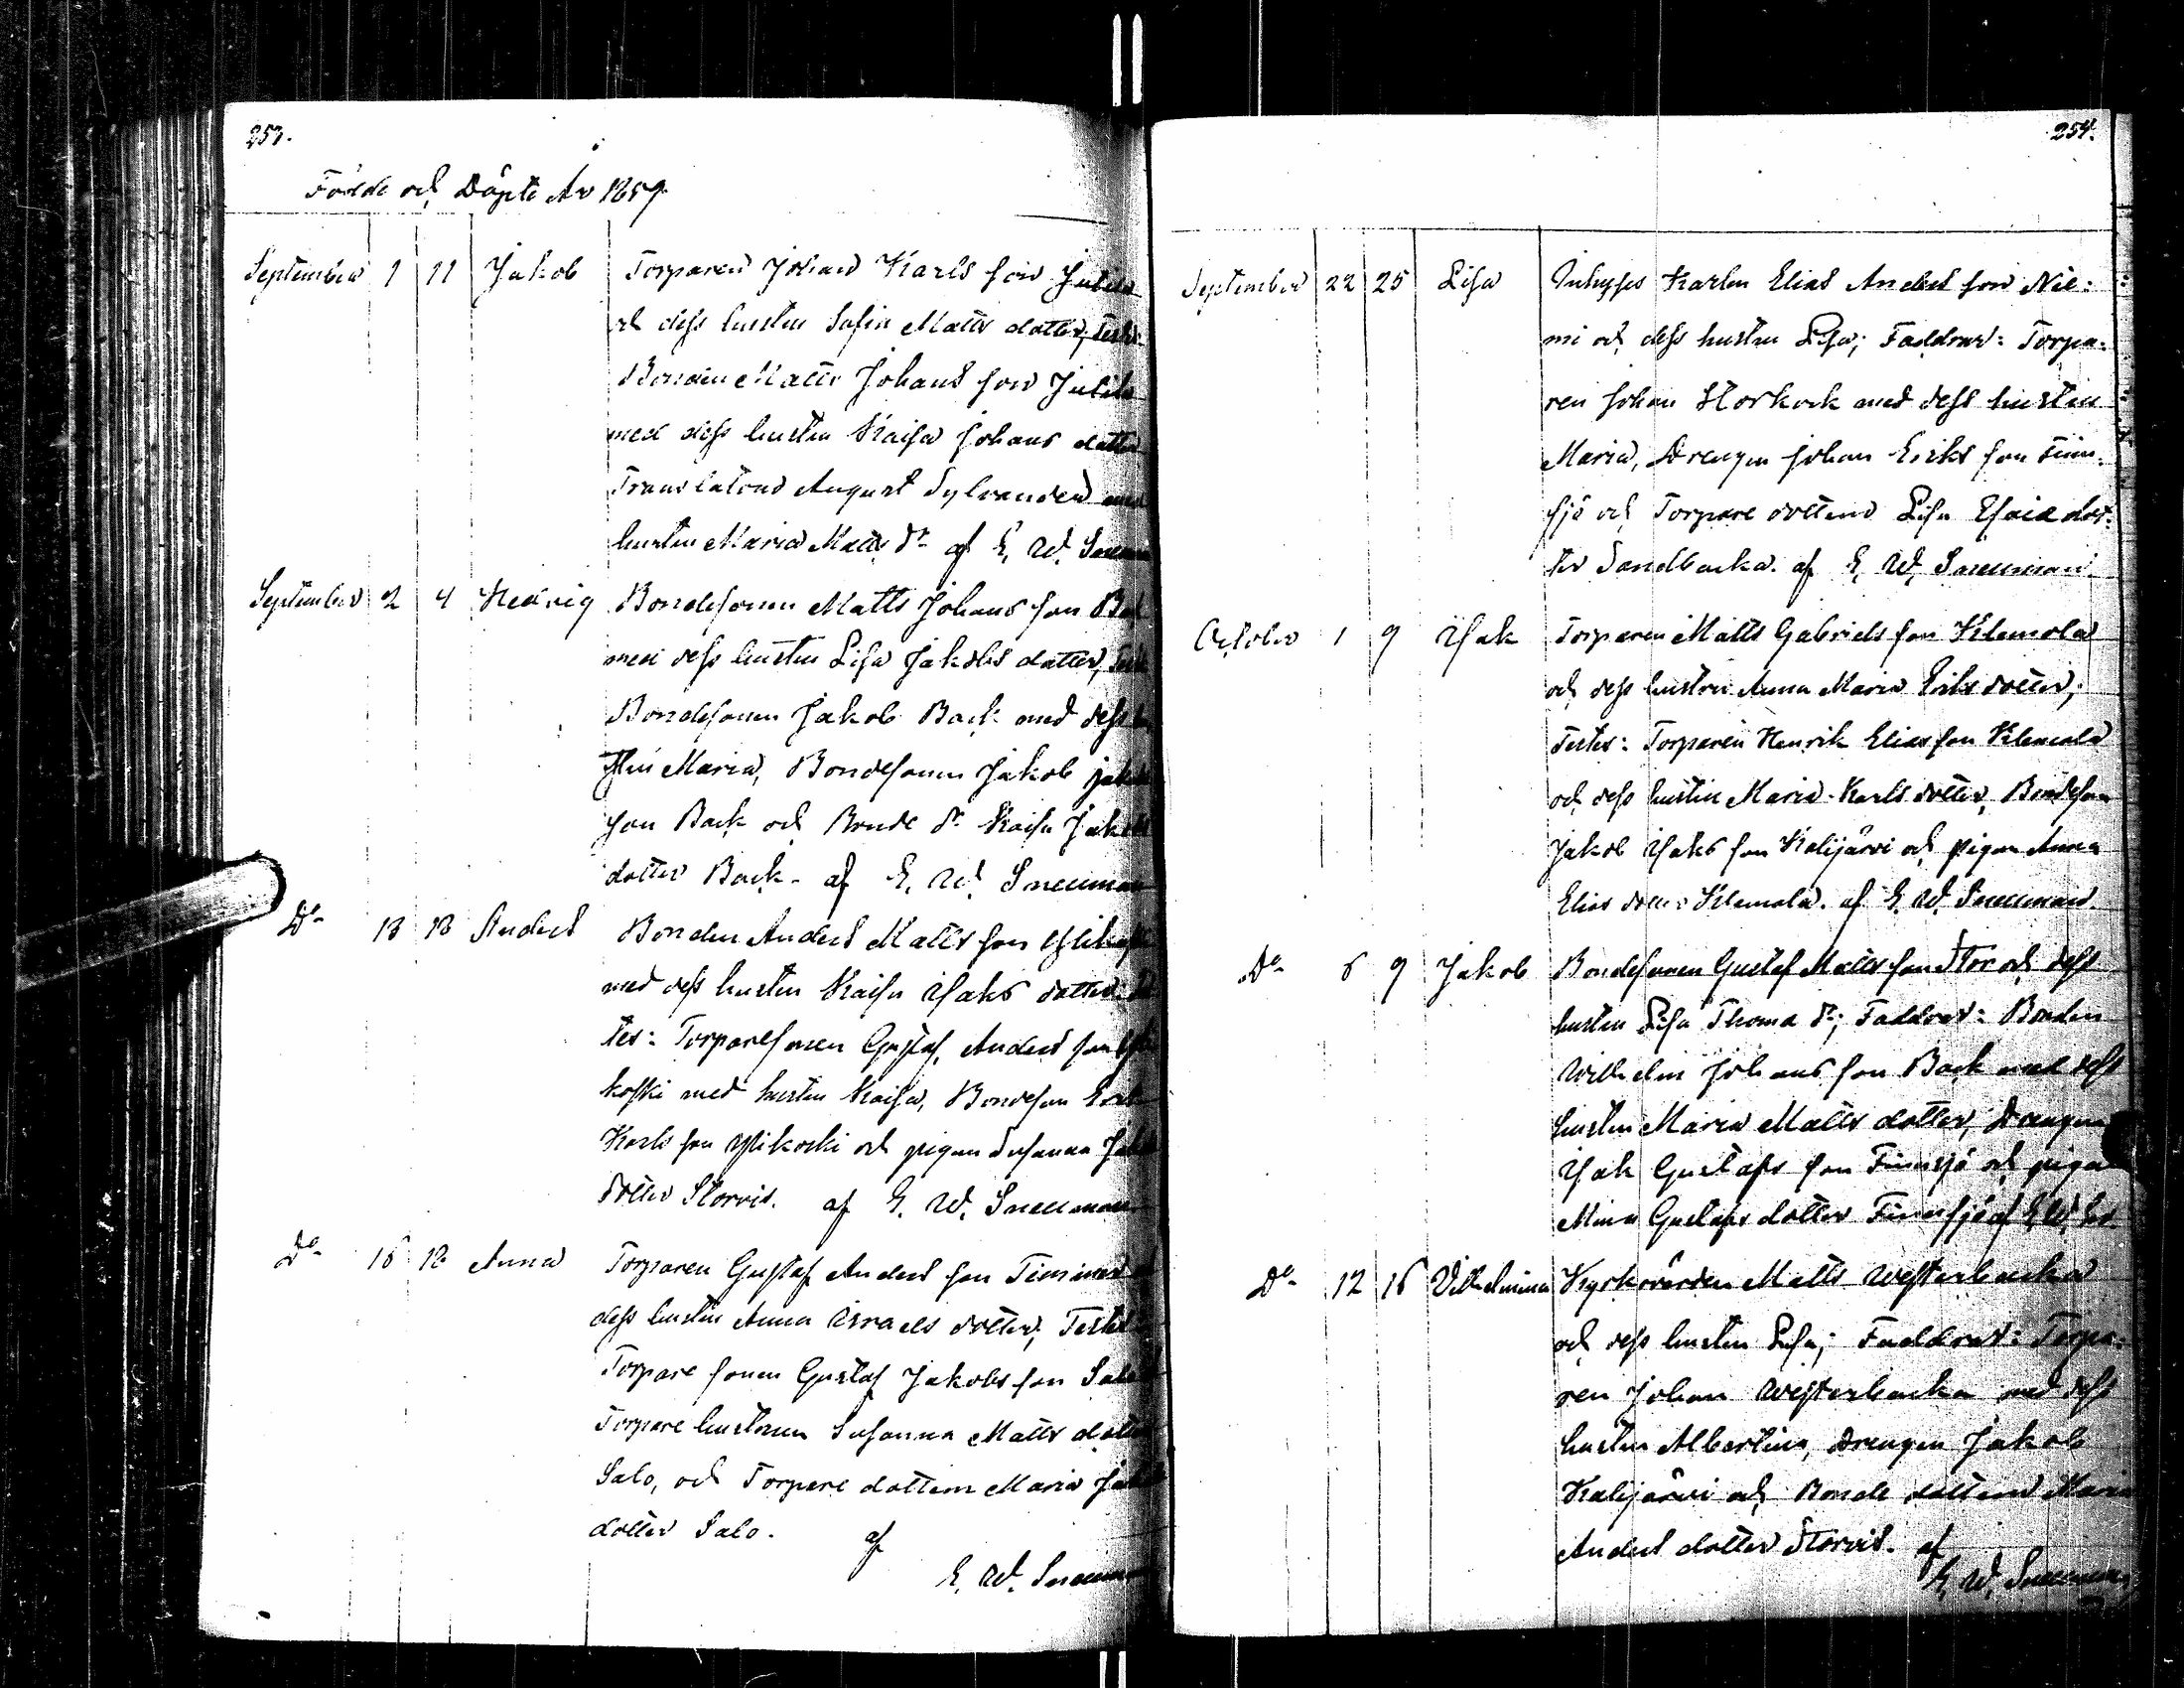 253.
Födde och Döpte År 1859.
September 1 11 Jakob Torparen Johan Karls son Jutila
och dess hustru Sofia Matts dotter, Test:
Bonden Matts Johans son Jutila
med dess hustru Kaisa Johans dotter
August Sylvander
hustru Maria Matts dr af E. W. Snellman
September 2 4 Hedvig Bondesonen Matts Johans son
med dess hustru Lisa Jakobs dotter,
Bondesonen Jakob Back med dess
Maria, Bondesonen Jakob
son Back och Bonde dr Kaisa
dotter Back. af E. W. Snellman
Do 13 18 Anders Bonden Anders Matts son
med dess hustru Kaisa Isaks dotter,
tes: Torparesonen Gustaf Anders son
koski med hustru Kaisa, Bondeson
Karls son Ylikoski och pigan Susanna
dotter Storvis. af E. W. Snellman
Do 15 18 Anna Torparen Gustaf Anders son
dess hustru Anna Israels dotter; Testes
Torpare sonen Gustaf Jakobs son Salo
Torpare hustrun Susanna Matts dotter
Salo, och Torpare dottern Maria
dotter Salo. af
E. W. Snellman
254.
September 22 25 Lisa Inhyses Karlen Elias Anders son Nie:
mi och dess hustru Lisa; Faddrar: Torpa:
ren Johan Storkock med dess hustru
Maria, Drengen Johan Eriks son Finn:
sjö och Torpare dottern Lisa Esaiæ dot:
ter Sandbacka. af E. W. Snellman
October 1 9 Isak Torparen Matts Gabriels son Klemola
och dess hustru Anna Maria Eriks dotter;
Testes: Torparen Henrik Elias son Klemola
och dess hustru Maria Karls dotter, Bondeson
Jakob Isaks son Kalijärvi och pigan Anna
Elias dotter Klemola. af E. W. Snellman.
Do 6 9 Jakob Bondesonen Gustaf Matts son Stor och dess
hustru Lisa Thomæ dr; Faddrar: Bonden
Wilhelm Johans son Back med dess
hustru Maria Matts dotter, Drengen
Isak Gustafs son Finnsjö och pigan
Mina Gustafs dotter Finnsjö af E. W.
Do 12 16 Vilhelmina Kyrkovärden Matts Westerbacka
och dess hustru Lisa; Faddrar: Torpa:
ren Johan Westerbacka med dess
hustru Albertina, Drengen Jakob
Kalijärvi och Bonde dottern
Anders dotter Storvis. af
E. W. Snellman